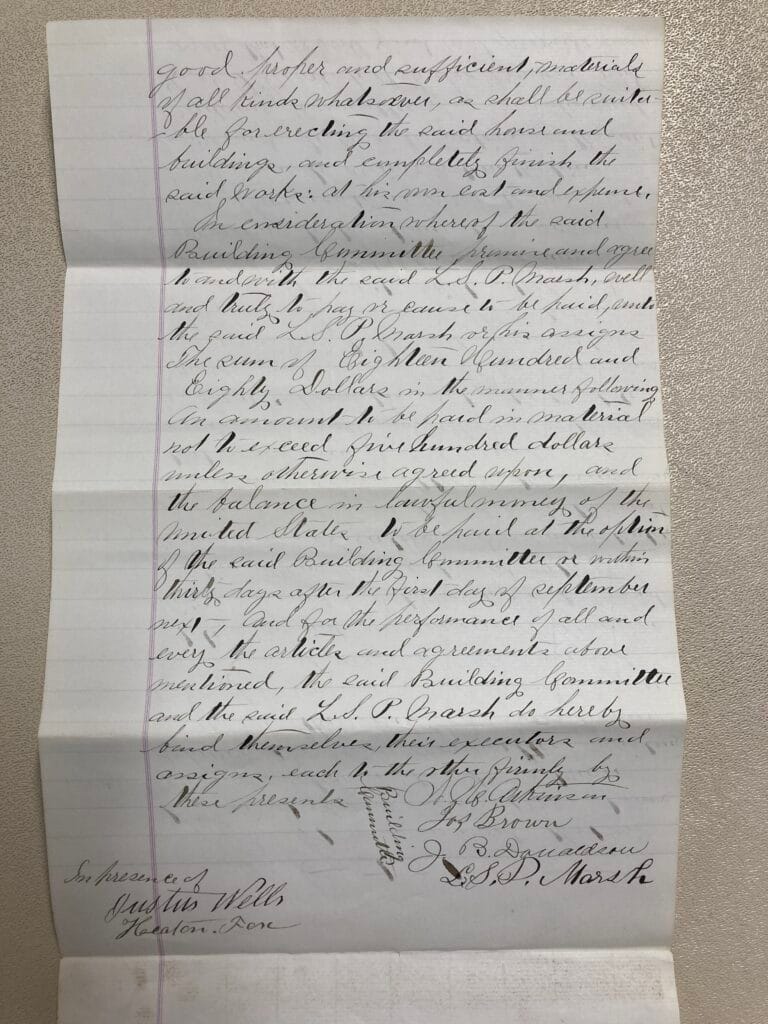 good proper and sufficient, materials
of all kinds whatsoever, as shall be suita-
-ble for erecting the said house and
buildings, and completely finish the
said works: at his own cost and expense,
In consideration whereof the said
Building Committee promise and agree
to and with the said L.S.P. Marsh, well
and truly to pay or cause to be paid, unto
the said L.S.P. Marsh or his assigns
The sum of Eighteen Hundred and
Eighty Dollars in the manner following
An amount to be paid in material
not to exceed five hundred dollars
unless otherwise agreed upon, and
the balance in lawful money of the
United States to be paid at the option
of the said Building Committee or within
thirty days after the first day of september
next, And for the performance of all and
every the articles and agreements above
mentioned, the said Building Committee
and the said L.S.P. Marsh do hereby
bind themselves, their executors and
assigns, each to the other firmly by
these presents
Building
Committee
Atkinson
Jos Brown
J. B. Donaldson
L.S.P. Marsh
In presence of
Justus Wells
Heaton Fox